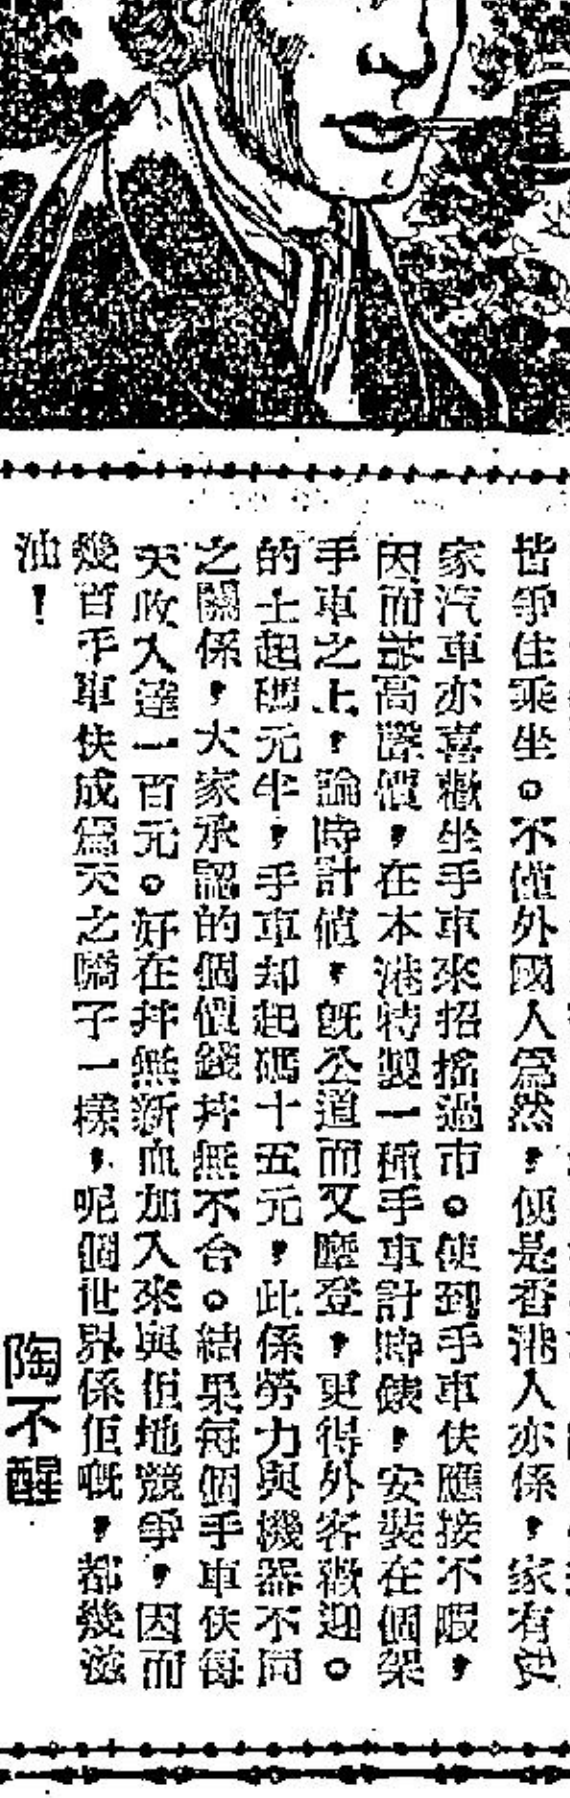 皆爭住乘坐。不僅外國人爲然，便是香港人亦係，家有
家汽車亦喜歡坐手車來招搖過市。使到手車伕應接不暇，
因而高擡價，在本港特製一種手車計時錶，安裝在個架
手車之上，論時計值，旣公道而又麼登，更得外客歡迎。
的士起碼元半，手車却起碼十五元，此係勞力與機器不同
之關係，大家承認的個價錢幷無不合。結果每個手車伕每
天收入達一百元。好在幷無新血加入來與佢哋競爭，因而
幾百手車伕成爲天之驕子一樣，呢個世界係佢嘅，都幾滋
油！
陶不醒